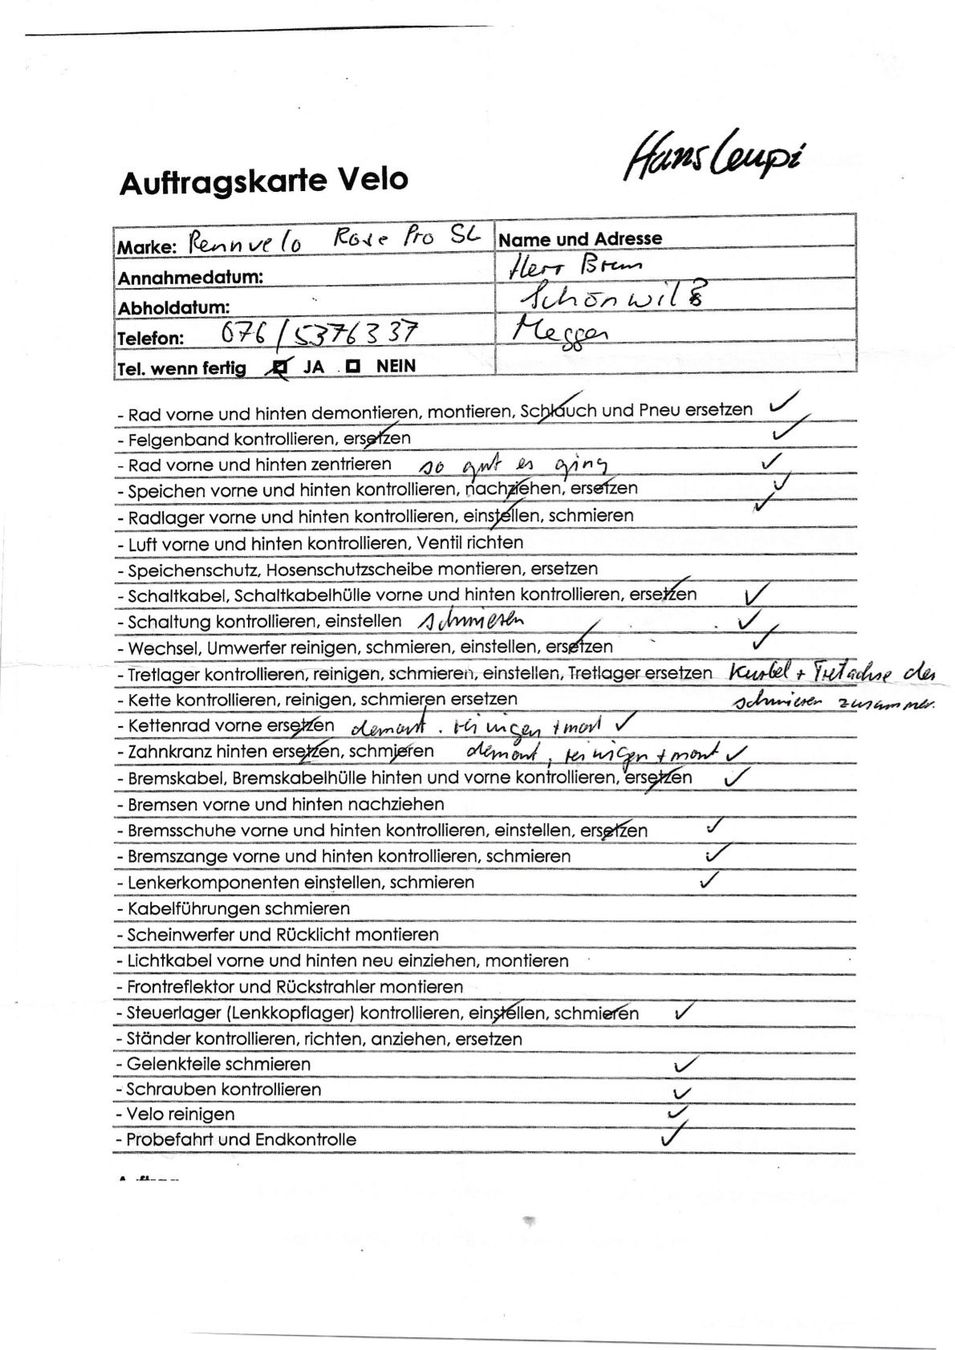 Hans Leupi
Auftragskarte Velo
Marke: Rennvelo Rose Pro SL
Name und Adresse
Annahmedatum:
Herr
Abholdatum:
Schönwil
Telefon: 076/5376337
Meggen
Tel. wenn fertig JA NEIN
- Rad vorne und hinten demontieren, montieren, Schlauch und Pneu ersetzen ✓
- Felgenband kontrollieren, ersetzen ✓
- Rad vorne und hinten zentrieren so gut es ging ✓
- Speichen vorne und hinten kontrollieren, nachziehen, ersetzen ✓
- Radlager vorne und hinten kontrollieren, einstellen, schmieren ✓
- Luft vorne und hinten kontrollieren, Ventil richten
- Speichenschutz, Hosenschutzscheibe montieren, ersetzen
- Schaltkabel, Schaltkabelhülle vorne und hinten kontrollieren, ersetzen ✓
- Schaltung kontrollieren, einstellen schmieren ✓
- Wechsel, Umwerfer reinigen, schmieren, einstellen, ersetzen ✓
- Tretlager kontrollieren, reinigen, schmieren, einstellen, Tretlager ersetzen Kurbel + Tretachse
- Kette kontrollieren, reinigen, schmieren ersetzen schmieren zusammen.
- Kettenrad vorne ersetzen demont. reinigen + mont ✓
- Zahnkranz hinten ersetzen, schmieren demont, reinigen + mont ✓
- Bremskabel, Bremskabelhülle hinten und vorne kontrollieren, ersetzen ✓
- Bremsen vorne und hinten nachziehen
- Bremsschuhe vorne und hinten kontrollieren, einstellen, ersetzen ✓
- Bremszange vorne und hinten kontrollieren, schmieren ✓
- Lenkerkomponenten einstellen, schmieren ✓
- Kabelführungen schmieren
- Scheinwerfer und Rücklicht montieren
- Lichtkabel vorne und hinten neu einziehen, montieren
- Frontreflektor und Rückstrahler montieren
- Steuerlager (Lenkkopflager) kontrollieren, einstellen, schmieren ✓
- Ständer kontrollieren, richten, anziehen, ersetzen
- Gelenkteile schmieren ✓
- Schrauben kontrollieren ✓
- Velo reinigen ✓
- Probefahrt und Endkontrolle ✓